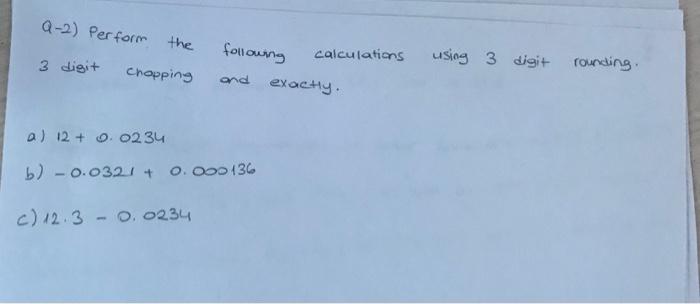 Q-2) Perform the following calculations using 3 digit rounding.
3 digit chopping and exactly.
a) 12 + 0.0234
b) - 0.0321 + 0.000136
c) 12.3 - 0.0234